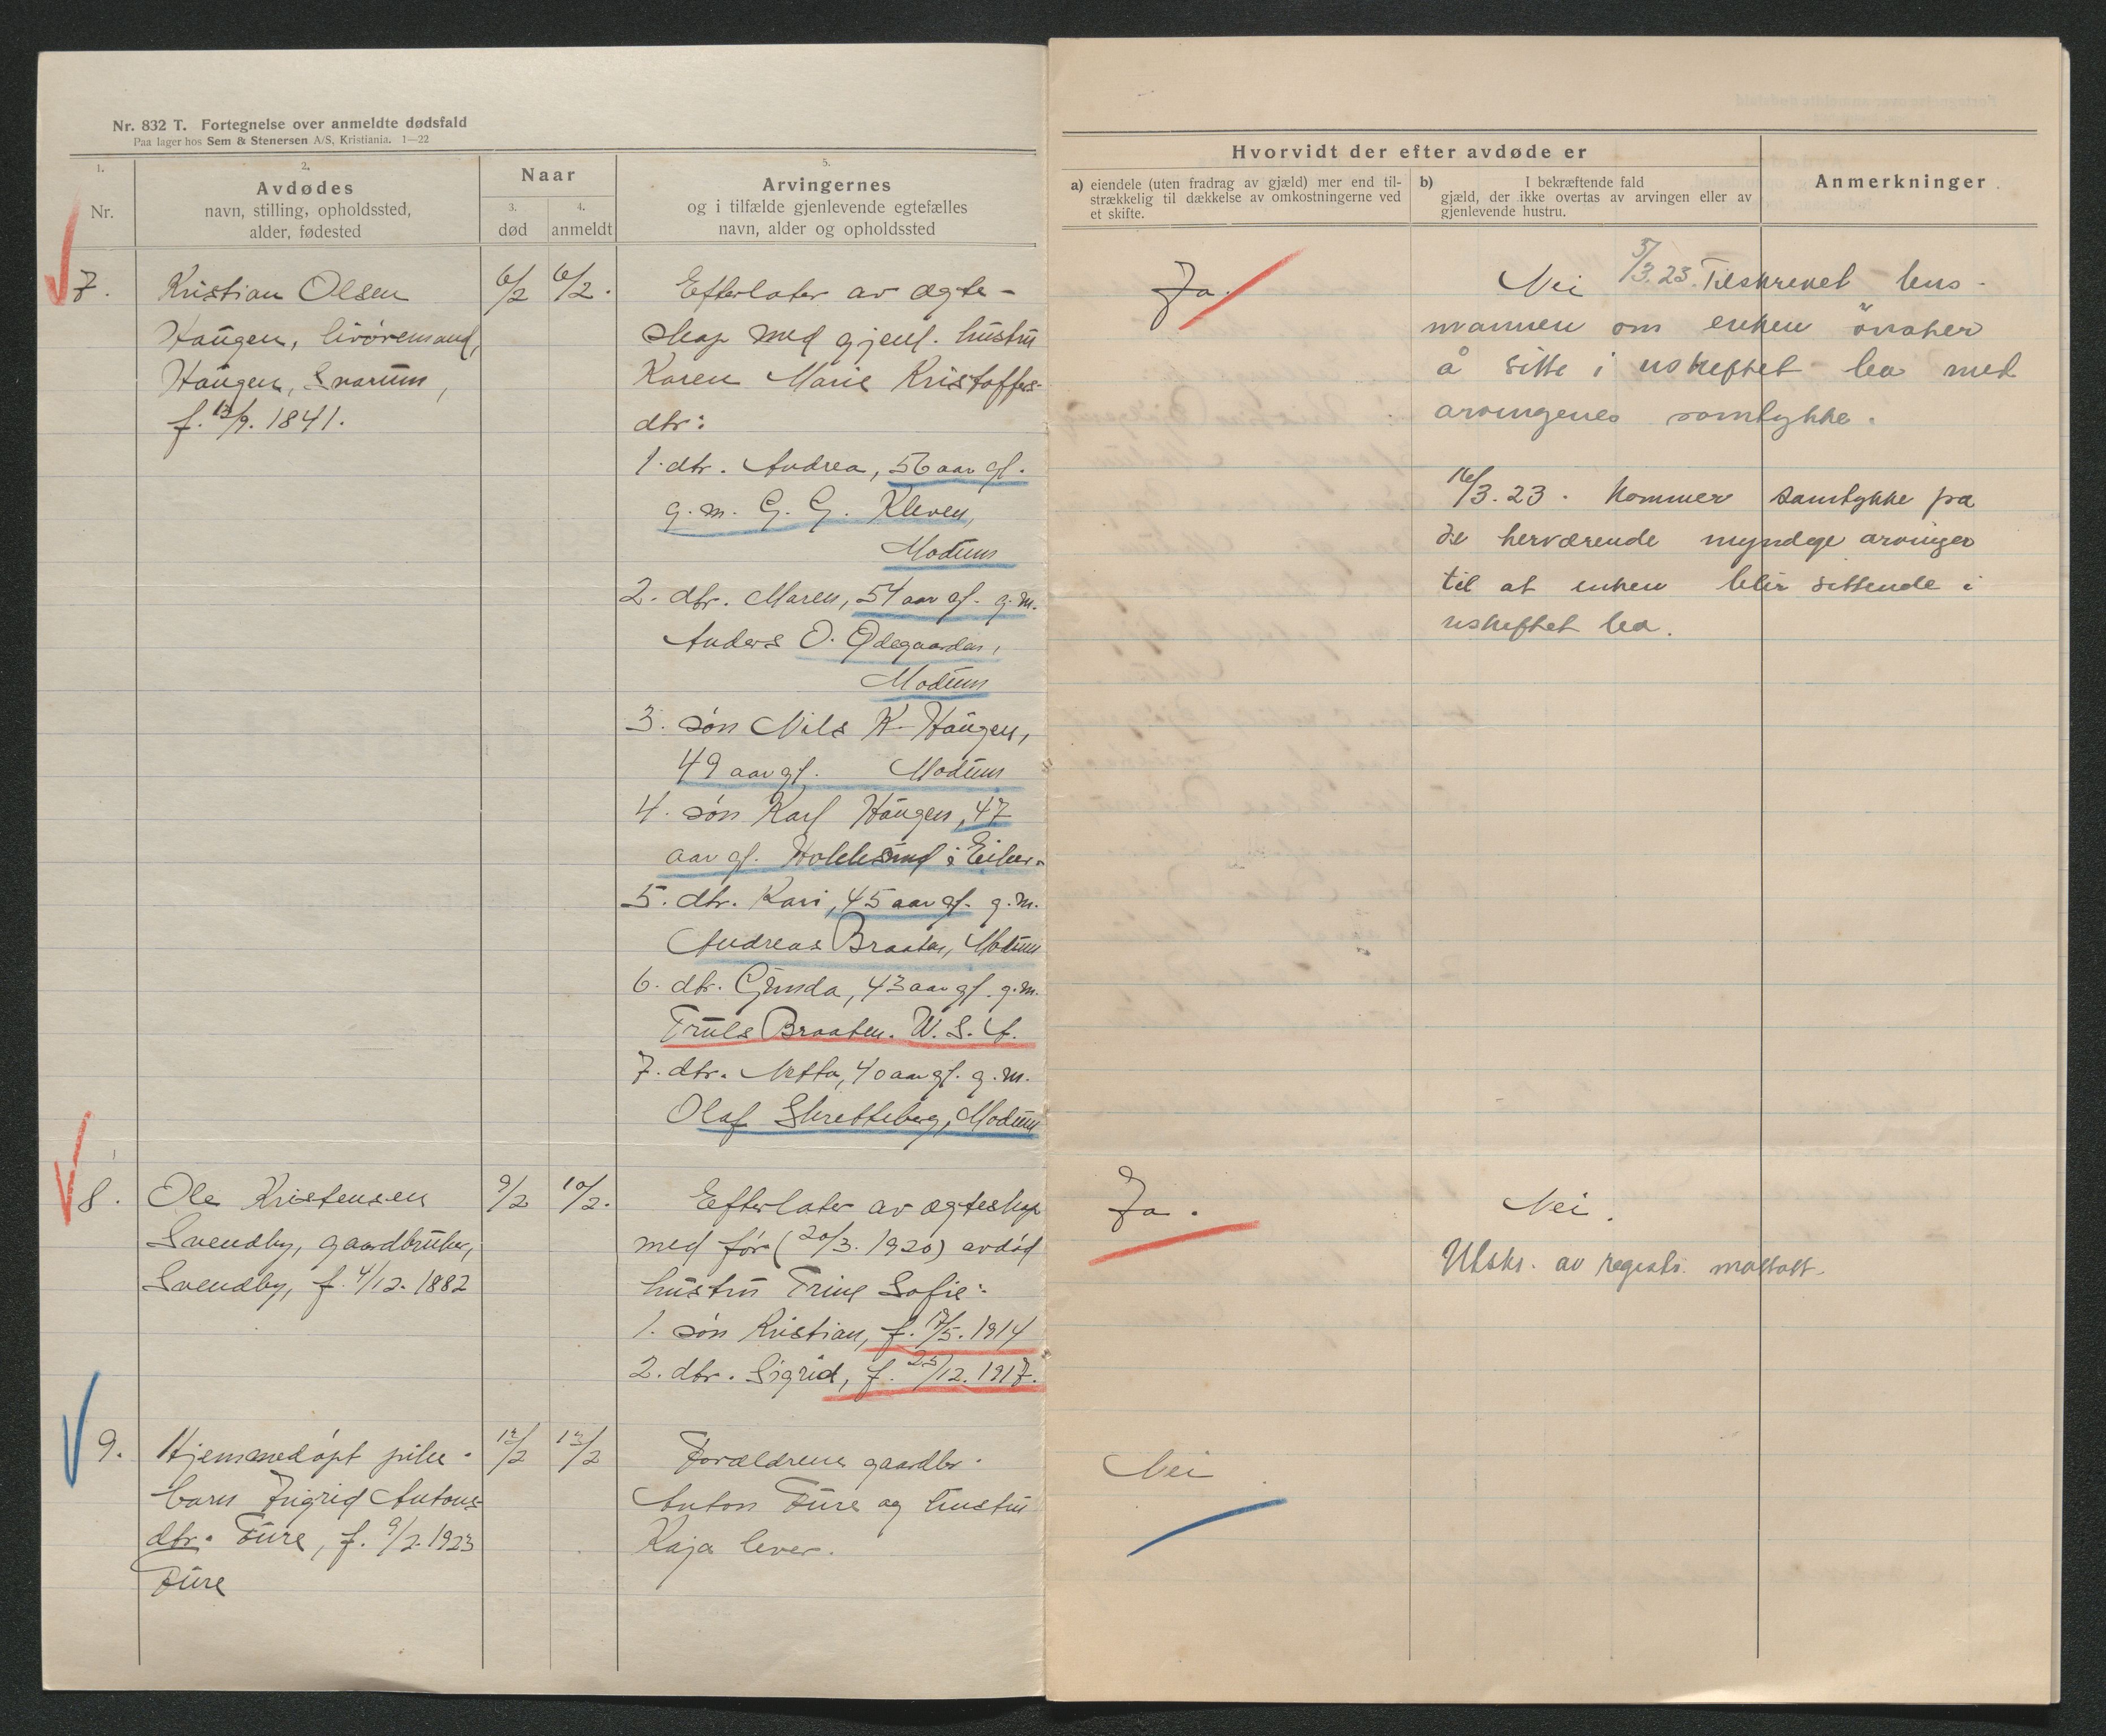 Nr. 832 T. Fortegnelse over anmeldte dødsfald
Paa lager hos Sem & Stenersen A/S, Kristiania. 1—22
1.
Nr.
2.
Avdødes
navn, stilling, opholdssted,
alder, fødested
Naar
3.
død
4.
anmeldt
5.
Arvingernes
og i tilfælde gjenlevende egtefælles
navn, alder og opholdssted
Hvorvidt der efter avdøde er
a) eiendele (uten fradrag av gjæld) mer end til-
strækkelig til dækkelse av omkostningerne ved
et skifte.
b) I bekræftende fald
gjæld, der ikke overtas av arvingen eller av
gjenlevende hustru.
Anmerkninger
7.
Kristian Olsen
Haugen, livøremand,
Haugen, Snarum,
f. 13/9. 1841.
6/2
6/2.
Efterlater av ægte-
skap med gjenl. hustru
Karen Marie Kristoffers-
dtr:
1. dtr. Andrea, 56 aar gl.
g. m. G. G. Kleven,
Modum
2. dtr. Maren, 54 aar gl. g. m.
Anders O. Ødegaarden,
Modum
3. søn Nils K. Haugen,
49 aar gl. Modum
4. søn Karl Haugen, 47
aar gl. Hokksund i Eiker.
5. dtr. Kari, 45 aar gl. g. m.
Andreas Braaten, Modum
6. dtr. Gunda, 43 aar gl. g. m.
Truls Braaten. U. S. A.
7. dtr. Netta, 40 aar gl. g. m.
Olaf Skretteberg, Modum
Ja.
Nei
5/3.23. Tilskrevet lens-
mannen om enken önsker
å sitte i uskiftet bo med
arvingenes samtykke.
16/3.23. Kommer samtykke fra
de herværende myndige arvinger
til at enken blir sittende i
uskiftet bo.
8.
Ole Kristensen
Svendby, gaardbruker,
Svendby, f. 4/12. 1882
9/2
10/2.
Efterlater av ægteskap
med før (20/3. 1920) avdød
hustru Trine Sofie:
1. søn Kristian, f. 17/5. 1914
2. dtr. Sigrid, f. 25/12. 1917.
Ja.
Nei.
Utskr. av registr. mottatt.
9.
Hjemmedøpt pike-
barn Ingrid Antons-
dtr. Fure, f. 9/2. 1923
Fure
12/2
13/2
Forældrene gaardbr.
Anton Fure og hustru
Kaja lever.
Nei